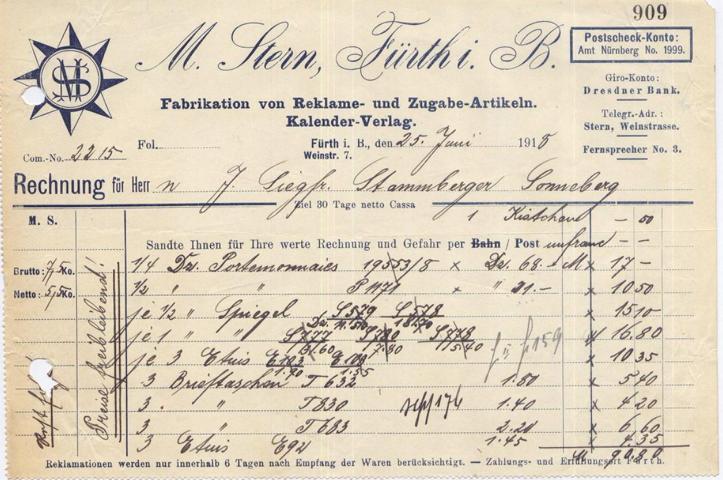 909
M. Stern, Fürth i. B.
Postscheck-Konto:
Amt Nürnberg No. 1999.
Fabrikation von Reklame- und Zugabe-Artikeln.
Kalender-Verlag.
Giro-Konto:
Dresdner Bank.
Telegr.-Adr.:
Stern, Weinstrasse.
Fernsprecher No. 3.
Com.-No. 2215
Fol.
Fürth i. B., den 25. Juni 1918
Weinstr. 7.
Rechnung für Herrn J. Siegfr. Stammberger Sonneberg
Ziel 30 Tage netto Cassa
M. S.
1 Kistchen – 50
Sandte Ihnen für Ihre werte Rechnung und Gefahr per Bahn / Post unfranco – –
Brutto: 7,5 Ko.
Netto: 5,5 Ko.
Preise freibleibend!
1/4 Dz. Portemonnaies 19553/8 x Dz. 68.- M x 17 –
1/2 " " P1171 x " 21.- x 10 50
je 1/2 " Spiegel S579 S578 x 15 10
je 1 " " S777 S780 S778 16.80
je 3 Etuis x 10 35
3 Brieftaschen T632 1.80 x 5 40
3 " T830 1.40 x 4 20
3 " T683 2.20 x 6 60
3 Etuis E92 1.45 x 4.35
M 90.80
Reklamationen werden nur innerhalb 6 Tagen nach Empfang der Waren berücksichtigt. — Zahlungs- und Erfüllungsort Fürth.